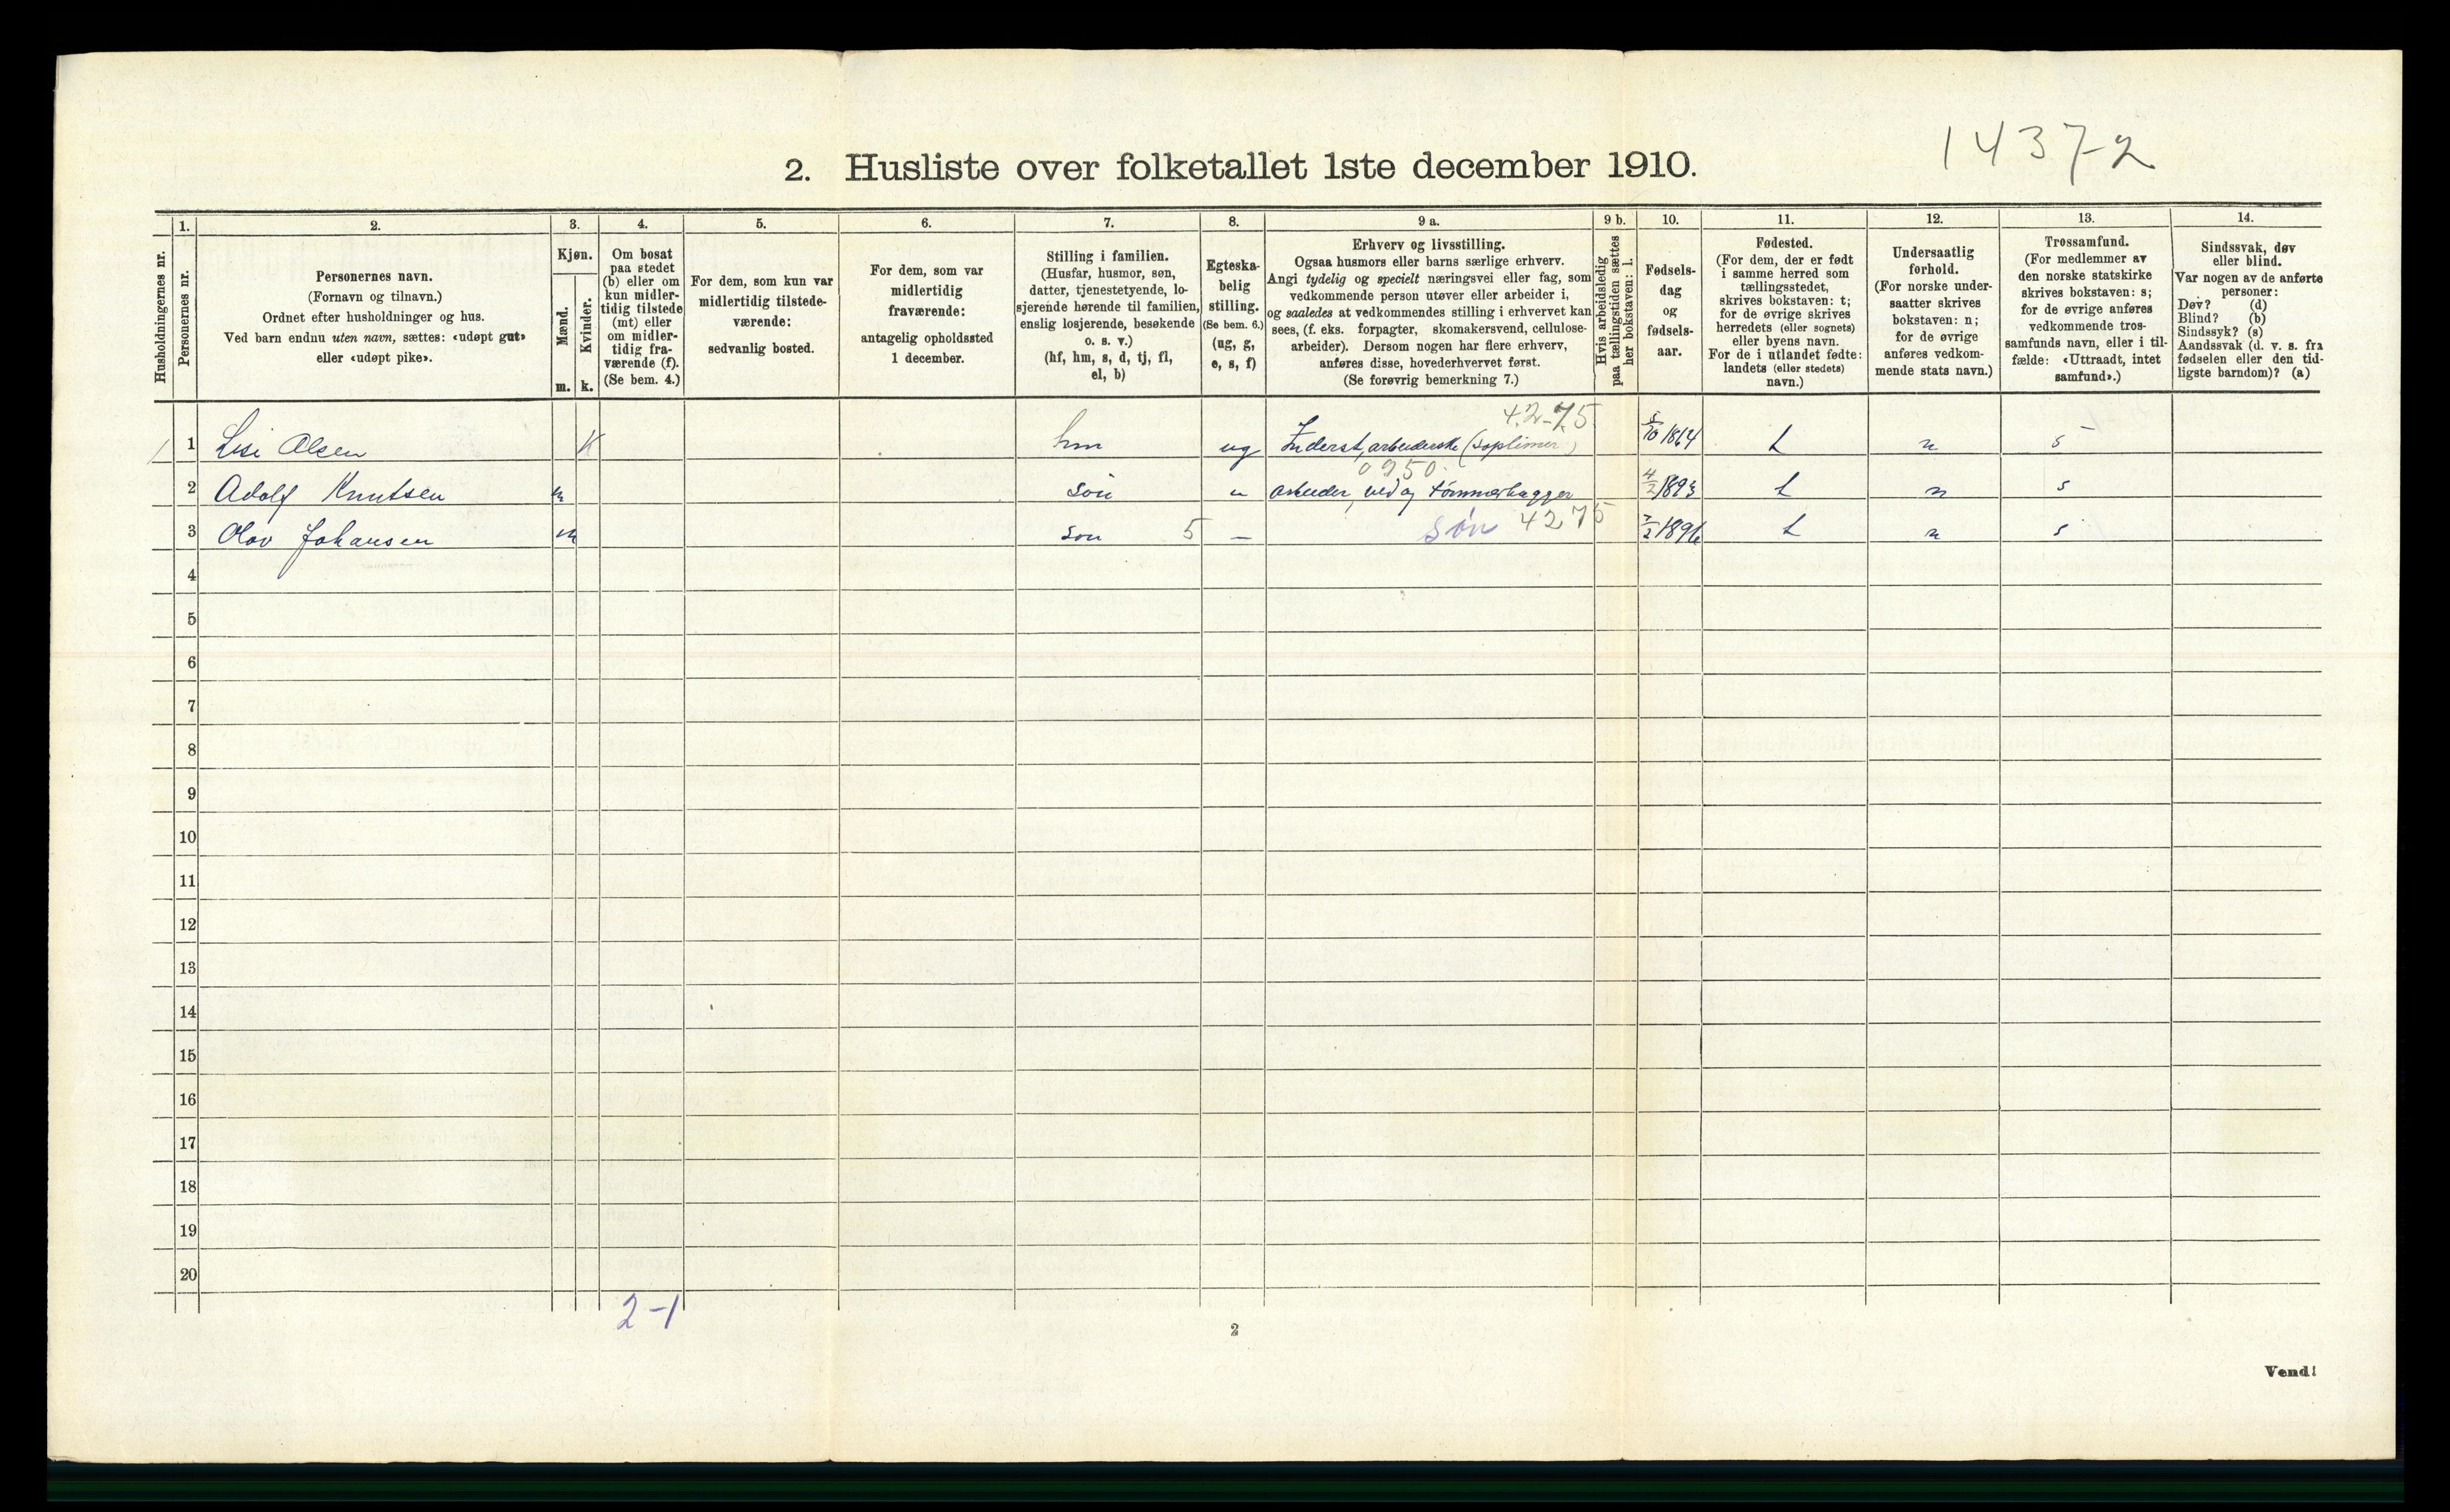 1437-2
2. Husliste over folketallet 1ste december 1910.
1. 2. 3. 4. 5. 6. 7. 8. 9 a. 9 b. 10. 11. 12. 13. 14.
Husholdningernes nr.
Personernes nr.
Personernes navn.
(Fornavn og tilnavn.)
Ordnet efter husholdninger og hus.
Ved barn endnu uten navn, sættes: «udøpt gut»
eller «udøpt pike».
Kjøn.
Mænd.
m.
Kvinder.
k.
Om bosat
paa stedet
(b) eller om
kun midler-
tidig tilstede
(mt) eller
om midler-
tidig fra-
værende (f).
(Se bem. 4.)
For dem, som kun var
midlertidig tilstede-
værende:
sedvanlig bosted.
For dem, som var
midlertidig
fraværende:
antagelig opholdssted
1 december.
Stilling i familien.
(Husfar, husmor, søn,
datter, tjenestetyende, lo-
sjerende hørende til familien,
enslig losjerende, besøkende
o. s. v.)
(hf, hm, s, d, tj, fl,
el, b)
Egteska-
belig
stilling.
(Se bem. 6.)
(ug, g,
e, s, f)
Erhverv og livsstilling.
Ogsaa husmors eller barns særlige erhverv.
Angi tydelig og specielt næringsvei eller fag, som
vedkommende person utøver eller arbeider i,
og saaledes at vedkommendes stilling i erhvervet kan
sees, (f. eks. forpagter, skomakersvend, cellulose-
arbeider). Dersom nogen har flere erhverv,
anføres disse, hovederhvervet først.
(Se forøvrig bemerkning 7.)
Hvis arbeidsledig
paa tællingstiden sættes
her bokstaven: l.
Fødsels-
dag
og
fødsels-
aar.
Fødested.
(For dem, der er født
i samme herred som
tællingsstedet,
skrives bokstaven: t;
for de øvrige skrives
herredets (eller sognets)
eller byens navn.
For de i utlandet fødte:
landets (eller stedets)
navn.)
Undersaatlig
forhold.
(For norske under-
saatter skrives
bokstaven: n;
for de øvrige
anføres vedkom-
mende stats navn.)
Trossamfund.
(For medlemmer av
den norske statskirke
skrives bokstaven: s;
for de øvrige anføres
vedkommende tros-
samfunds navn, eller i til-
fælde: «Uttraadt, intet
samfund».)
Sindssvak, døv
eller blind.
Var nogen av de anførte
personer:
Døv? (d)
Blind? (b)
Sindssyk? (s)
Aandssvak (d. v. s. fra
fødselen eller den tid-
ligste barndom)? (a)
42-75
1 1 Lisi Olsen K hm ug Inderst, arbeiderske 5/10 1864 t n s
0950
2 Adolf Knutsen m søn " arbeider, ved og tømmerhugger 4/2 1893 t n s
3 Olav Johansen m søn 5 — Søn 4275 7/2 1896 t n s
4
5
6
7
8
9
10
11
12
13
14
15
16
17
18
19
20
2-1
2
Vend!